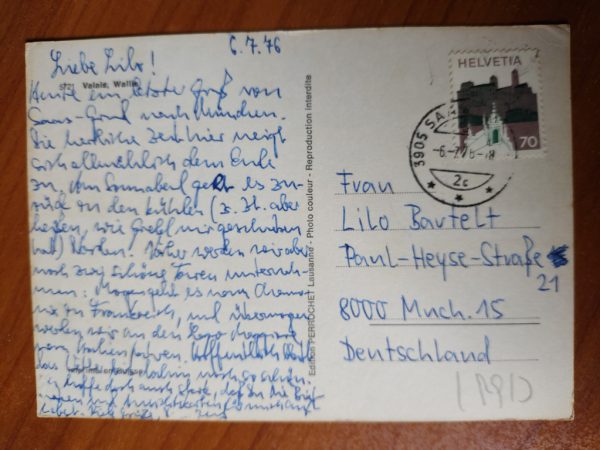 6.7.76
Liebe Lilo!
5721 Valais, Wallis
Heute ein letzter Gruß von
Saas-Grund nach München.
Die herrliche Zeit hier neigt
sich allmählich dem Ende
zu, Am Sonnabend geht es zu-
rück in den kühlen (z. Zt. aber
heißen, wie mir geschrieben
hat) Norden. Vorher werden wir aber
noch zwei schöne Touren unterneh-
men: Morgen geht es nach Chamo-
nix in Frankreich, und übermorgen
werden wir an den Lago
nach Italien fahren. Hoffentlich bleibt
das bis dahin noch so schön.
Imprimé en Suisse
Ich hoffe doch auch stark, daß Du die Brief-
marken
Edition PERROCHET Lausanne - Photo couleur - Reproduction interdite
HELVETIA
70
3905 SAAS
-6.-7.76-18
2c
Frau
Lilo Bartelt
Paul-Heyse-Straße
21
8000 Münch. 15
Deutschland